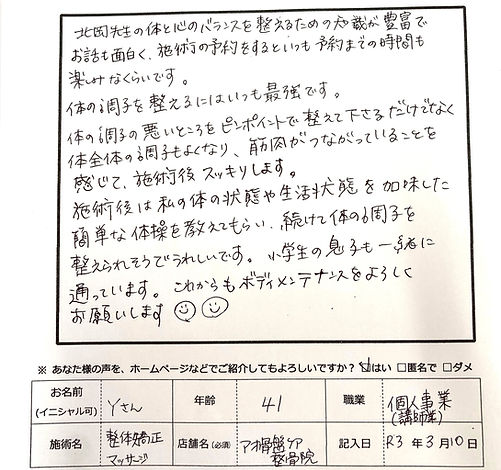 北岡先生の体と心のバランスを整えるための知識が豊富で
お話も面白く、施術の予約をするといつも予約までの時間も
楽しみなくらいです。
体の調子を整えるにはいつも最強です。
体の調子の悪いところをピンポイントで整えて下さるだけでなく
体全体の調子もよくなり、筋肉がつながっていることを
感じて、施術後スッキリします。
施術後は私の体の状態や生活状態を加味した
簡単な体操を教えてもらい、続けて体の調子を
整えられそうでうれしいです。小学生の息子も一緒に
通っています。これからもボディメンテナンスをよろしく
お願いします
※ あなた様の声を、ホームページなどでご紹介してもよろしいですか？ ☑はい □匿名で □ダメ
お名前 (イニシャル可) Yさん 年齢 41 職業 個人事業 (講師業)
施術名 整体矯正 マッサージ 店舗名(必須) ア 骨盤ケア 整骨院 記入日 R3年3月10日